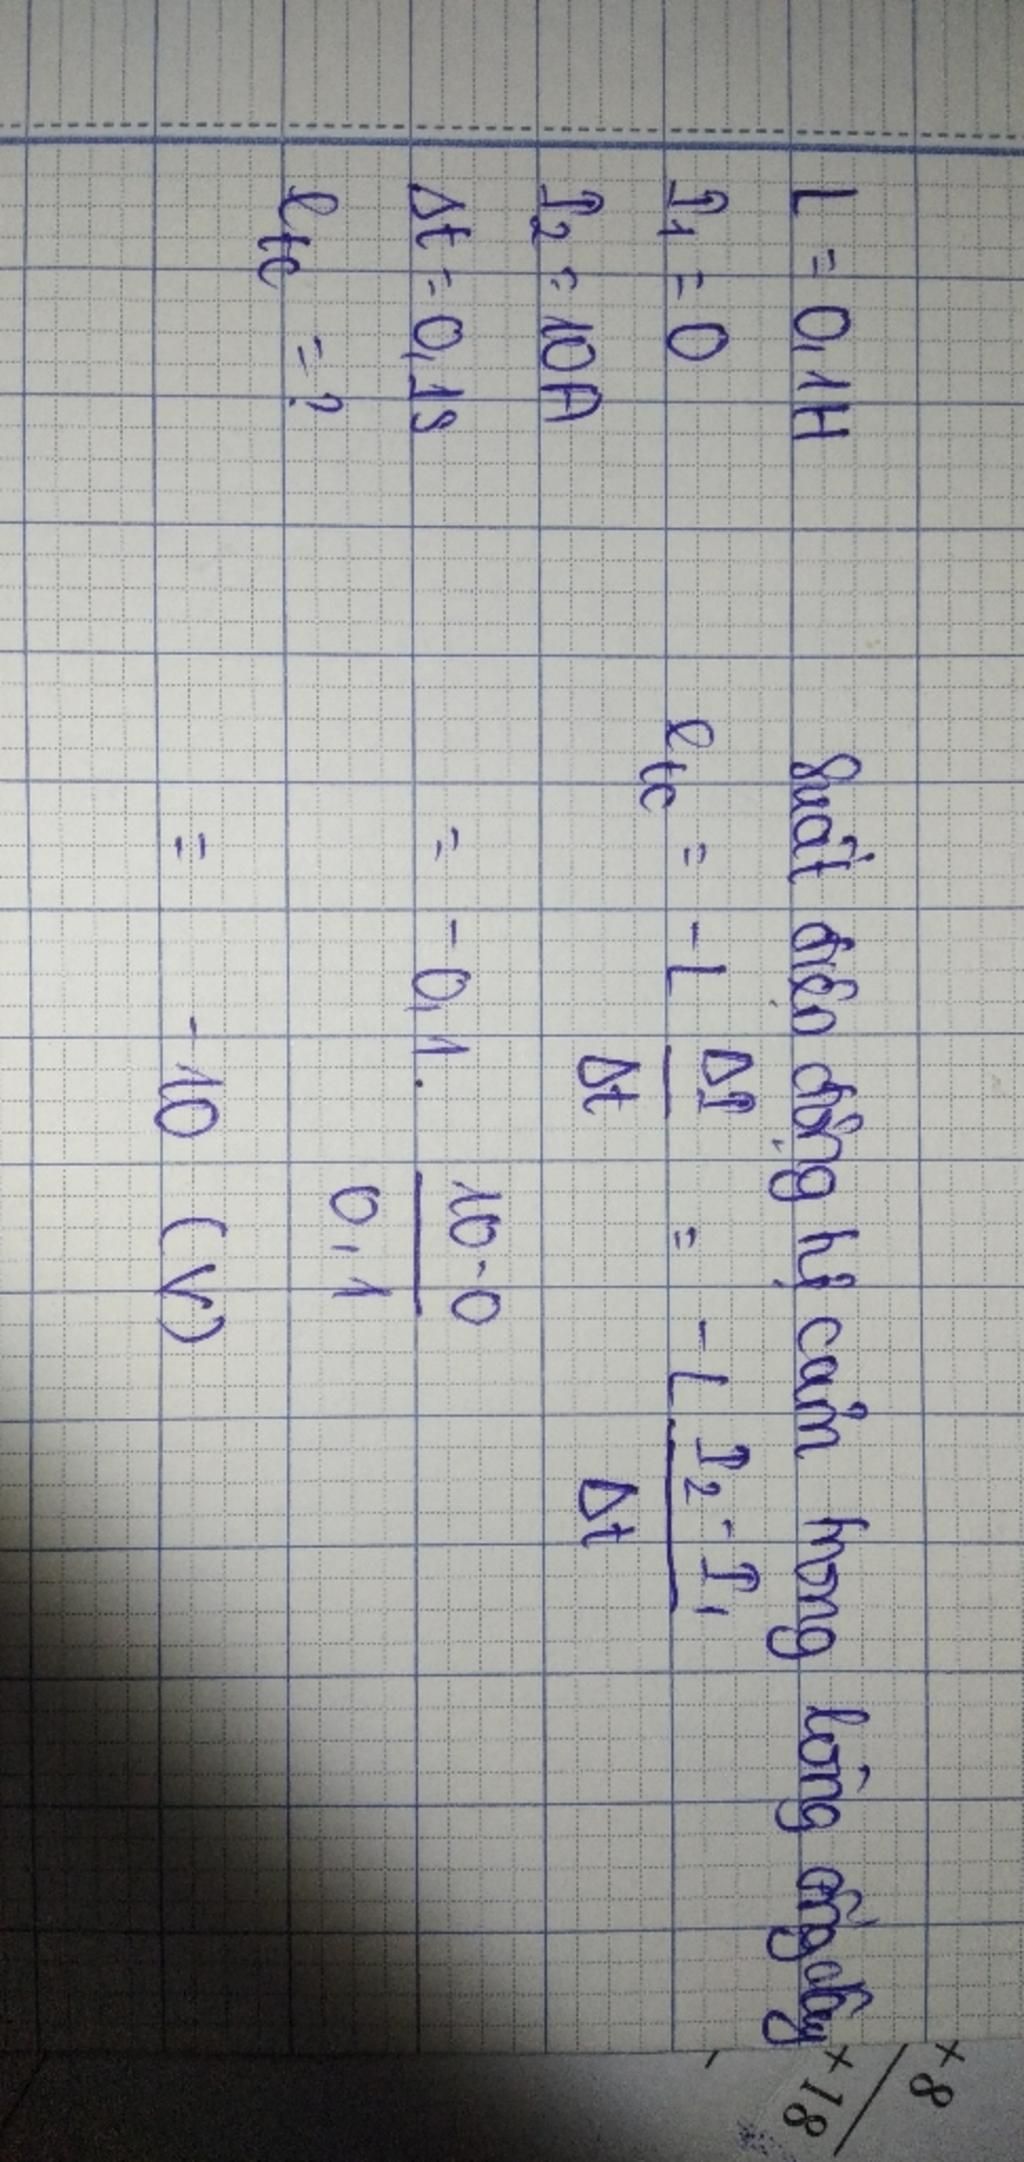 L = 0,1H
I₁ = 0
I₂ = 10A
Δt = 0,1s
etc = ?
Suất điện động tự cảm trong lòng ống dây
etc = -L ΔI/Δt = -L (I₂ - I₁)/Δt
= -0,1. (10-0)/0,1
= -10 (V)
+8
+18